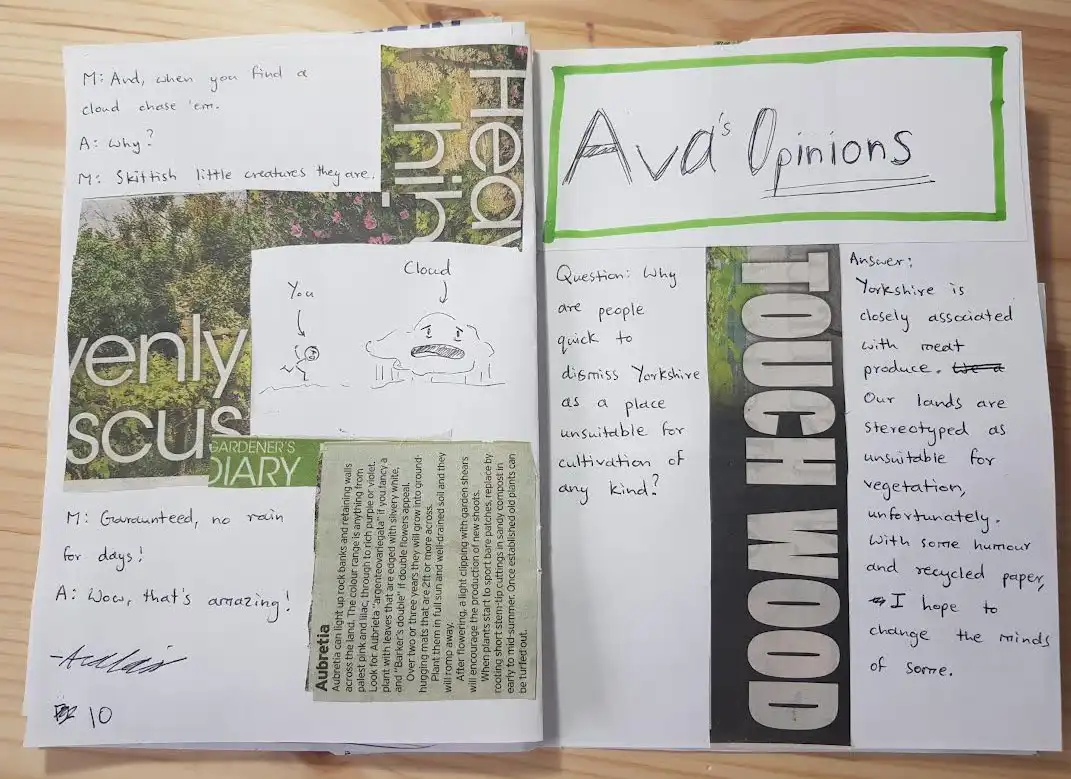 M: And, when you find a
cloud chase 'em.
A: Why?
M: Skittish little creatures they are.
Heav
hib
venly
scus
GARDENER'S
DIARY
You
Cloud
M: Garaunteed, no rain
for days!
A: Wow, that's amazing!
10
Aubretia
Aubretia can light up rock banks and retaining walls
across the land. The colour range is anything from
palest pink and lilac, through to rich purple or violet.
Look for Aubrietia "argenteovariegata" if you fancy a
plant with leaves that are edged with silvery white,
and "Barker's double" if double flowers appeal.
Over two or three years they will grow into ground-
hugging mats that are 2ft or more across.
Plant them in full sun and well-drained soil and they
will romp away.
After flowering, a light clipping with garden shears
will encourage the production of new shoots.
When plants start to sport bare patches, replace by
rooting short stem-tip cuttings in sandy compost in
early to mid-summer. Once established old plants can
be turfed out.
Ava's Opinions
Question: Why
are people
quick to
dismiss Yorkshire
as a place
unsuitable for
cultivation of
any kind?
TOUCH WOOD
Answer:
Yorkshire is
closely associated
with meat
produce.
Our lands are
stereotyped as
unsuitable for
vegetation,
unfortunately.
With some humour
and recycled paper,
I hope to
change the minds
of some.